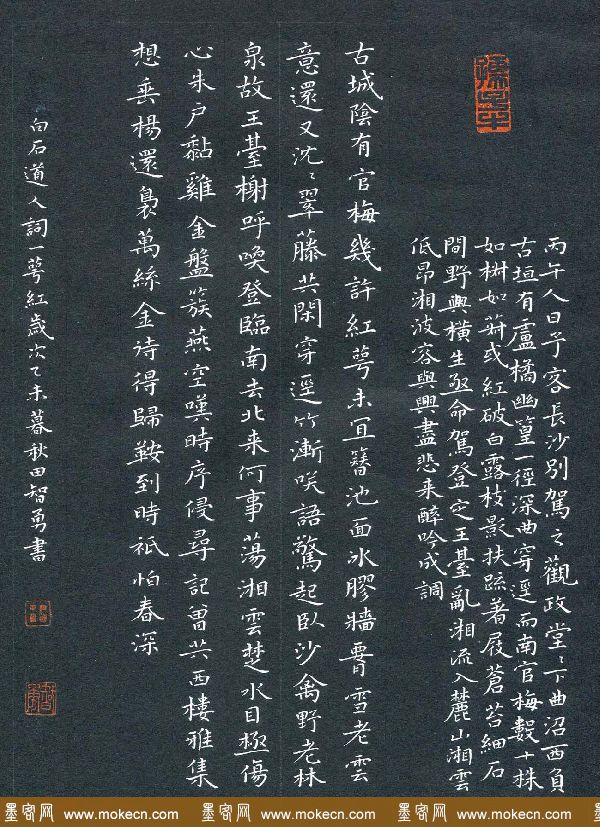 丙午人日予客長沙別駕之觀政堂〻下曲沼西負
古垣有盧橘幽篁一徑深曲穿逕而南官梅數十株
如樹如菽或紅破白露枝影扶疏著屐蒼苔細石
間野興橫生亟命駕登定王臺亂湘流入麓山湘雲
低昂湘波容與興盡悲来醉吟成調
古城陰有官梅幾許紅萼未宜簪池面冰膠牆腰雪老雲
意還又沈〻翠藤共閑穿逕竹漸咲語驚起臥沙禽野老林
泉故王臺榭呼喚登臨南去北来何事蕩湘雲楚水目極傷
心朱戶黏雞金盤簇燕空嘆時序侵尋記曾共西樓雅集
想垂楊還裊萬絲金待得歸鞍到時祇怕春深
白石道人詞一萼紅歲次乙未暮秋田智勇書
墨客网 www.mokecn.com 墨客网 www.mokecn.com 墨客网 www.mokecn.com